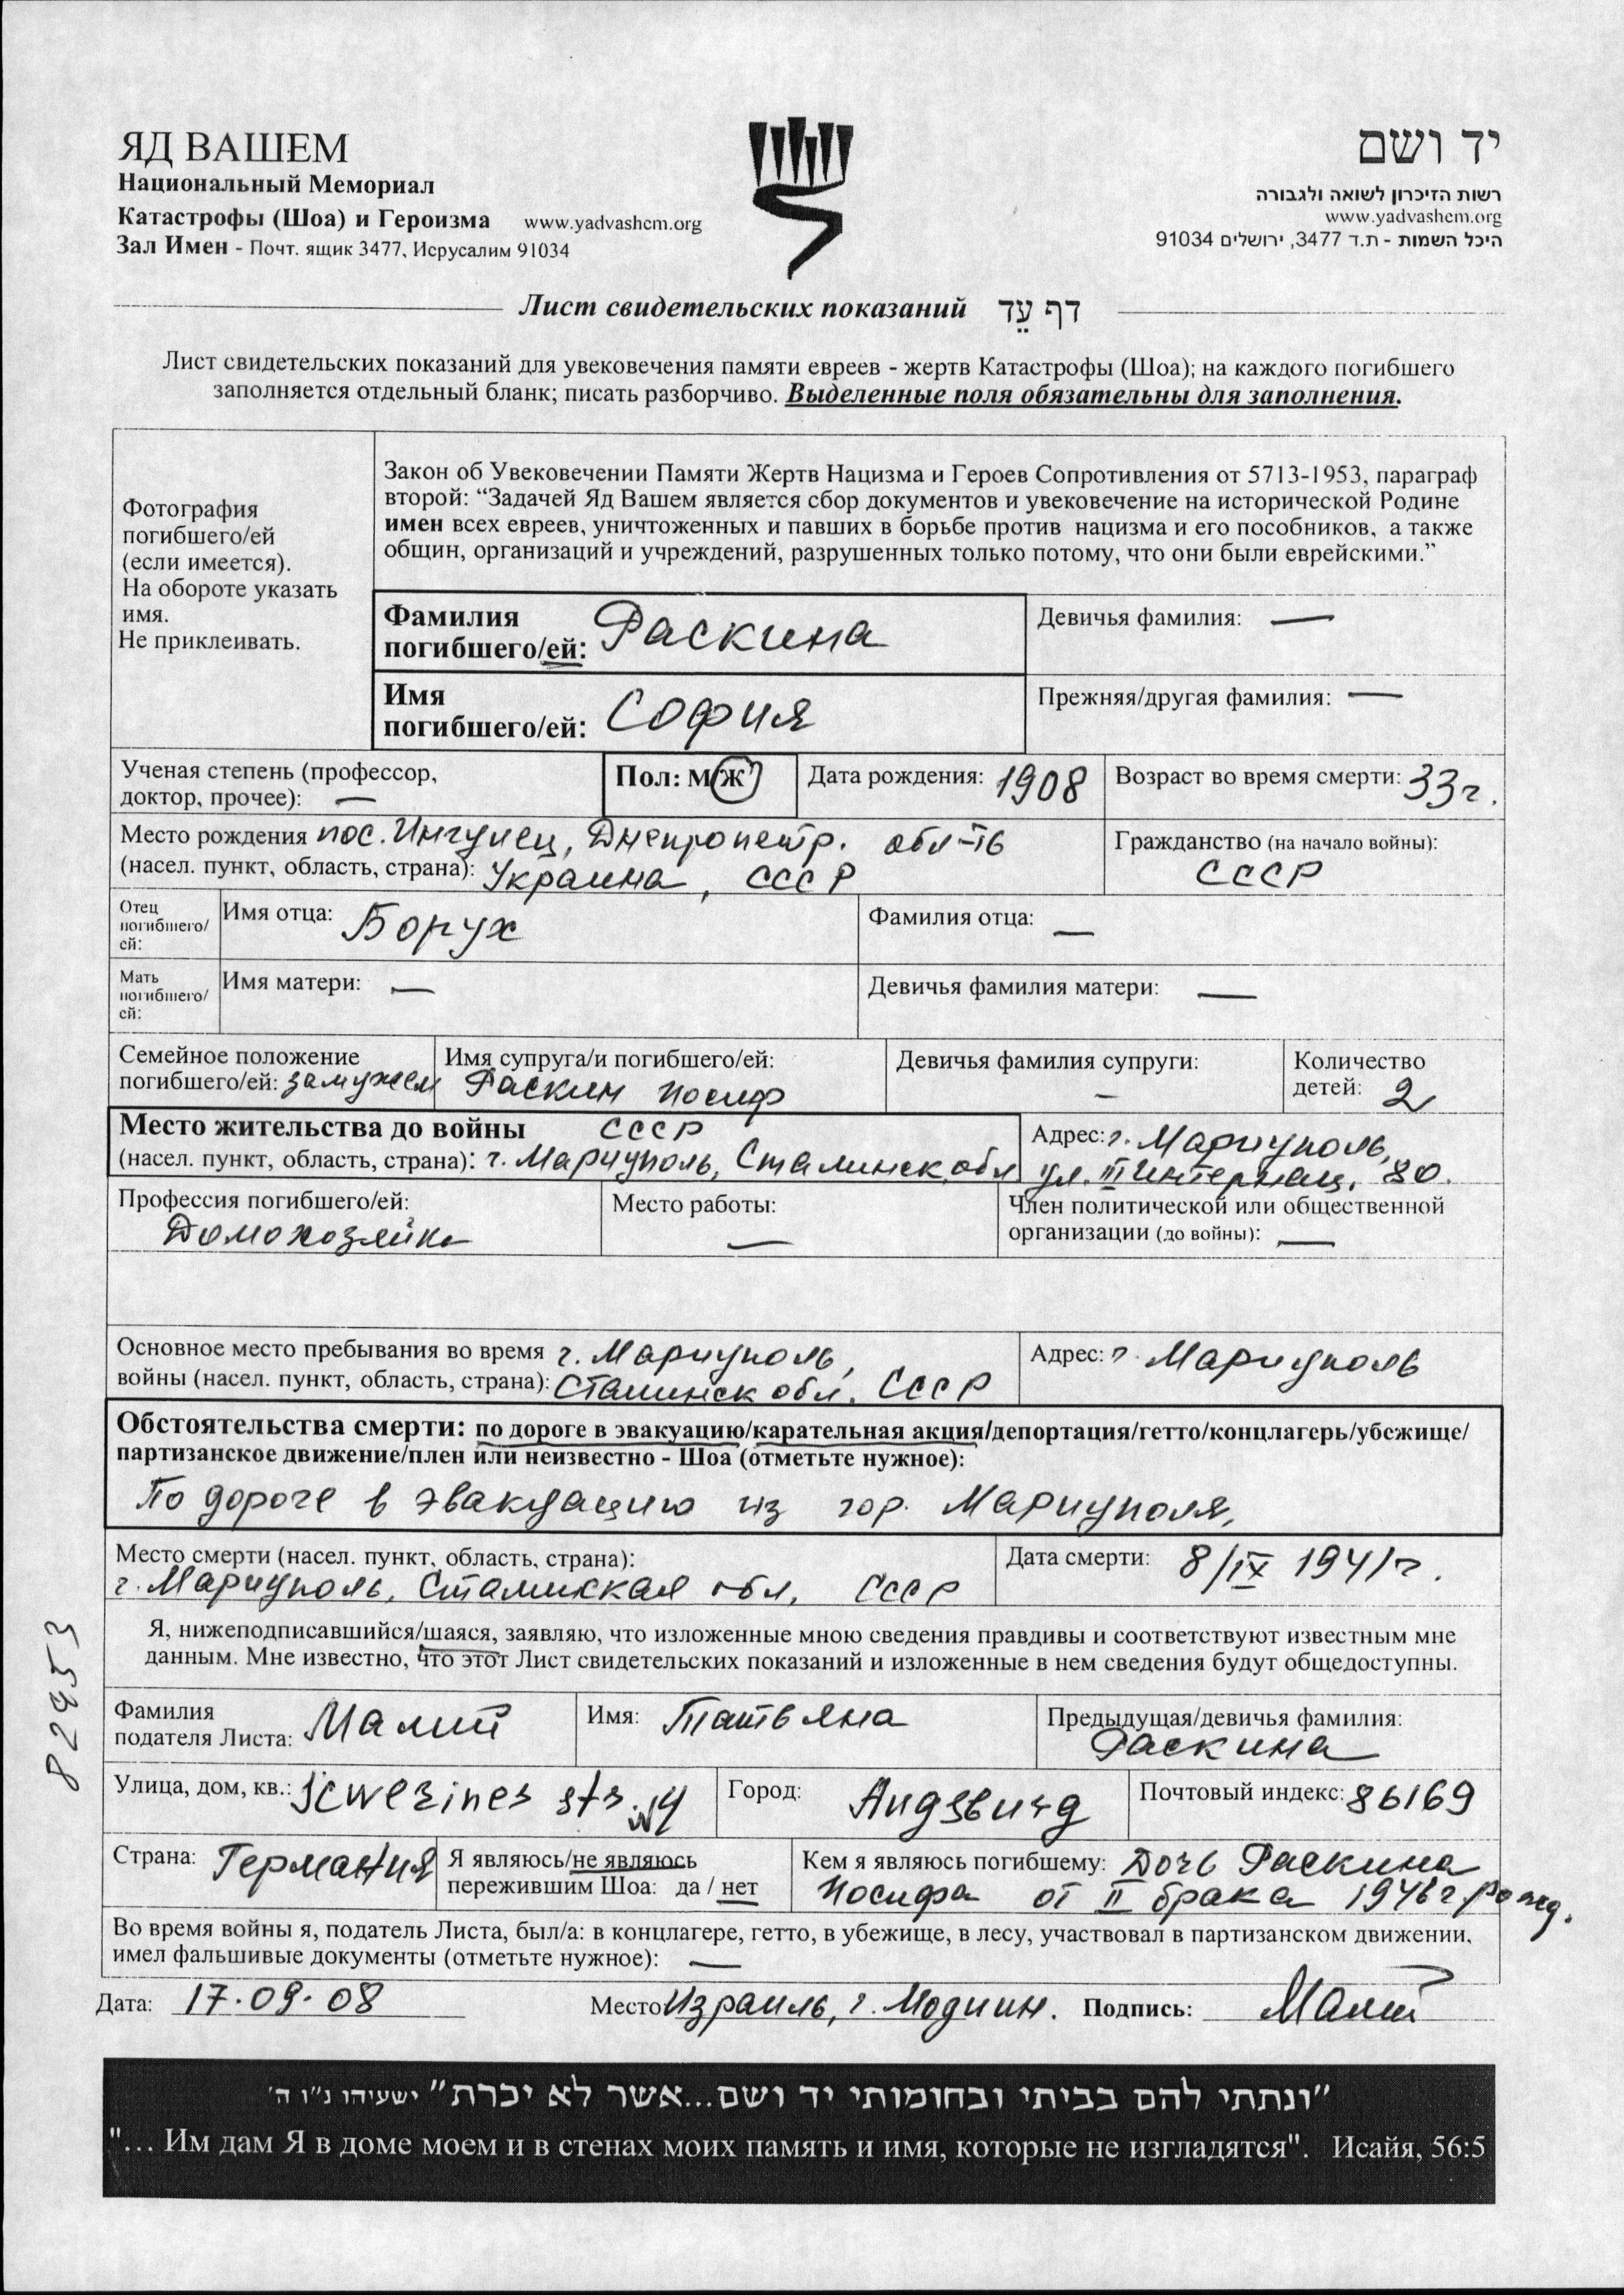 ЯД ВАШЕМ
Национальный Мемориал
Катастрофы (Шоа) и Героизма www.yadvashem.org
Зал Имен - Почт. ящик 3477, Иерусалим 91034
יד ושם
רשות הזיכרון לשואה ולגבורה
www.yadvashem.org
היכל השמות - ת.ד 3477, ירושלים 91034
Лист свидетельских показаний דף עֵד
Лист свидетельских показаний для увековечения памяти евреев - жертв Катастрофы (Шоа); на каждого погибшего
заполняется отдельный бланк; писать разборчиво. Выделенные поля обязательны для заполнения.
Фотография
погибшего/ей
(если имеется).
На обороте указать
имя.
Не приклеивать.
Закон об Увековечении Памяти Жертв Нацизма и Героев Сопротивления от 5713-1953, параграф
второй: “Задачей Яд Вашем является сбор документов и увековечение на исторической Родине
имен всех евреев, уничтоженных и павших в борьбе против нацизма и его пособников, а также
общин, организаций и учреждений, разрушенных только потому, что они были еврейскими.”
Фамилия
погибшего/ей: Раскина
Девичья фамилия: —
Имя
погибшего/ей: София
Прежняя/другая фамилия: —
Ученая степень (профессор,
доктор, прочее): —
Пол: М/Ж
Дата рождения: 1908
Возраст во время смерти: 33 г.
Место рождения пос. Ингулец, Днепропетр. обл-ть
(насел. пункт, область, страна): Украина, СССР
Гражданство (на начало войны):
СССР
Отец
погибшего/
ей:
Имя отца: Борух
Фамилия отца: —
Мать
погибшего/
ей:
Имя матери: —
Девичья фамилия матери: —
Семейное положение
погибшего/ей: замужем
Имя супруга/и погибшего/ей:
Раскин Иосиф
Девичья фамилия супруги:
-
Количество
детей: 2
Место жительства до войны СССР
(насел. пункт, область, страна): г. Мариуполь, Сталинск. обл
Адрес: г. Мариуполь,
ул. III Интернац. 80.
Профессия погибшего/ей:
Домохозяйка
Место работы:
—
Член политической или общественной
организации (до войны): —
Основное место пребывания во время г. Мариуполь,
войны (насел. пункт, область, страна): Сталинск обл. СССР
Адрес: г. Мариуполь
Обстоятельства смерти: по дороге в эвакуацию/карательная акция/депортация/гетто/концлагерь/убежище/
партизанское движение/плен или неизвестно - Шоа (отметьте нужное):
По дороге в эвакуацию из гор. Мариуполя,
Место смерти (насел. пункт, область, страна):
г. Мариуполь, Сталинская обл, СССР
Дата смерти: 8/IX 1941 г.
Я, нижеподписавшийся/шаяся, заявляю, что изложенные мною сведения правдивы и соответствуют известным мне
данным. Мне известно, что этот Лист свидетельских показаний и изложенные в нем сведения будут общедоступны.
82953
Фамилия
подателя Листа: Малий
Имя: Татьяна
Предыдущая/девичья фамилия:
Раскина
Улица, дом, кв.: Scweriner str.
Город: Augsburg
Почтовый индекс: 86169
Страна: Германия
Я являюсь/не являюсь
пережившим Шоа: да / нет
Кем я являюсь погибшему: Дочь Раскина
Иосифа от II брака 1946 г рожд.
Во время войны я, податель Листа, был/а: в концлагере, гетто, в убежище, в лесу, участвовал в партизанском движении,
имел фальшивые документы (отметьте нужное): —
Дата: 17.09.08
Место Израиль, г. Модиин.
Подпись: Малий
"ונתתי להם בביתי ובחומותי יד ושם...אשר לא יכרת" ישעיהו נ"ו ה'
"... Им дам Я в доме моем и в стенах моих память и имя, которые не изгладятся". Исайя, 56:5